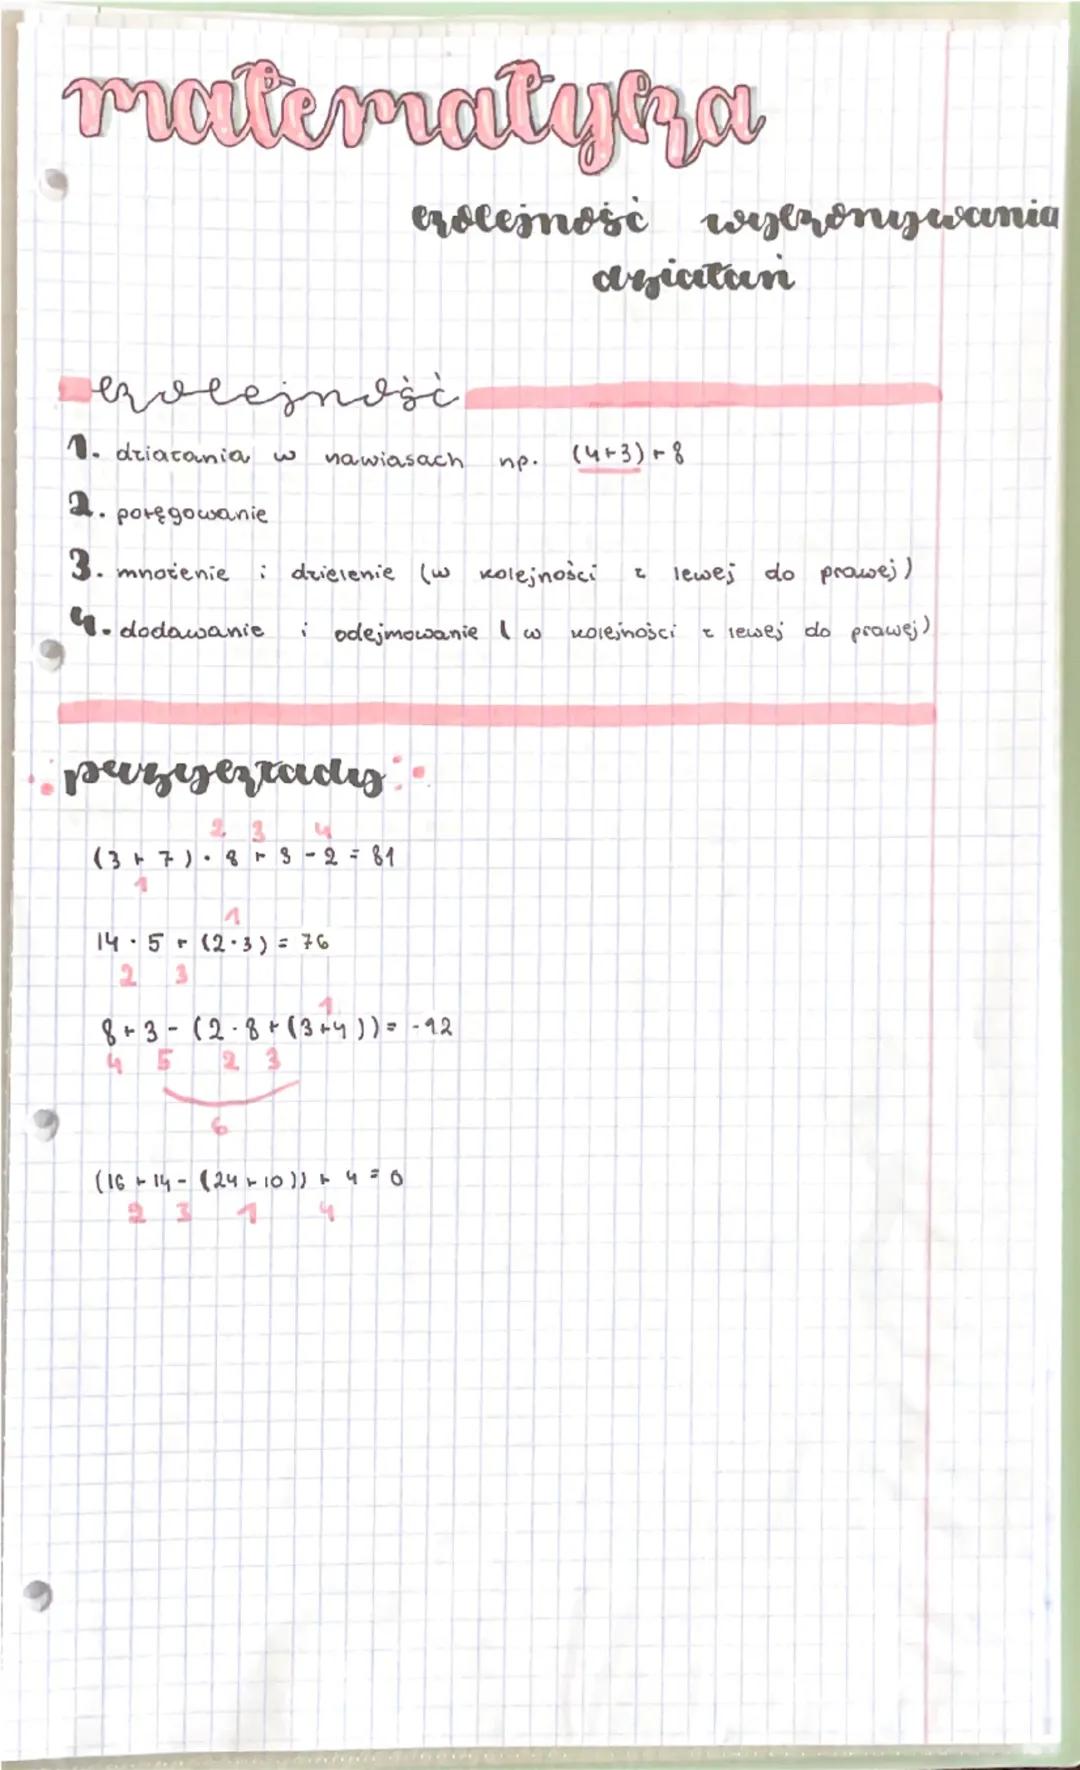 matematyka
kolejność wykonywania
działań
kolejność
1. działania w nawiasach np. (4+3)+8
2. potęgowanie
3. mnożenie i dzielenie (w kolejności z lewej do prawej)
4. dodawanie i odejmowanie (w kolejności z lewej do prawej)
przykłady:
2 3 4
(3+7)·8+3-2=81
1
1
14·5+(2·3)=76
2 3
1
8+3-(2·8+(3+4))=-12
4 5 2 3
6
(16+14-(24+10))+4=0
2 3 1 4